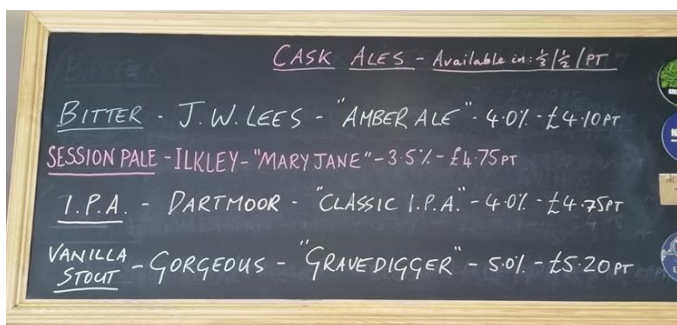 CASK ALES - Available in: ⅓/½/PT
BITTER - J.W. LEES - "AMBER ALE" - 4.0% - £4.10 PT
SESSION PALE - ILKLEY - "MARY JANE" - 3.5% - £4.75 PT
I.P.A. - DARTMOOR - "CLASSIC I.P.A." - 4.0% - £4.75 PT
VANILLA STOUT - GORGEOUS - "GRAVEDIGGER" - 5.0% - £5.20 PT